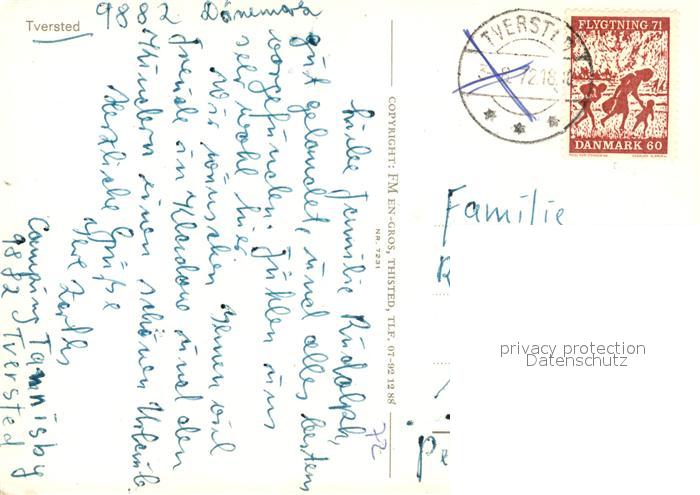 Tversted
9882 Dänemark
Liebe Familie Rudolph,
gut gelandet, und alles bestens
vorgefunden. Fühlen uns
sehr wohl hier.
Wir wünschen Ihnen viel
Freude in und den
Kindern einen schönen Urlaub
Herzliche Grüße
Camping Tannisby
9882 Tversted
COPYRIGHT: FM EN-GROS, THISTED, TLF. 07-92 12 88
NR. 7231
72
TVERSTED
72.18
FLYGTNING 71
DANMARK 60
Familie
privacy protection
Datenschutz